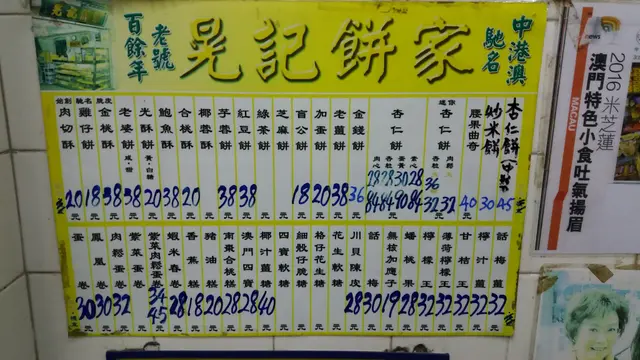 中港澳
馳名
晃記餅家
老號
百餘年
杏仁餅(中裝) 45
炒米餅 30
腰果曲奇 40
迷你 杏仁餅
杏仁餅
金錢餅 36
老薑餅 38
加蛋餅 20
盲公餅 18
芝麻餅
綠茶餅
紅豆餅 38
芋蓉餅 38
椰蓉酥
合桃酥 20
鮑魚酥 38
光酥餅 黃·白糖 20
老婆餅 咸·甜 38
脆皮 金桃酥 38
馳名 雞仔餅 18
始創 肉切酥 20
話梅薑 32
檸汁薑 32
甘桔王 32
薄荷檸檬王 32
檸檬王 32
蟠桃果 28
無核加應子 19
話梅 30
川貝陳皮 28
花生軟糖
格仔花生糖
細骰仔脆糖
四寶軟糖
椰汁薑糖 40
澳門四糖 28
南棗合桃糕 28
豬油糕 20
香蕉糕 18
蝦米春卷 28
紫菜肉鬆蛋卷 34 45
紫菜蛋卷
肉鬆蛋卷 32
鳳凰卷 30
蛋卷 30
news
2016 米芝蓮
澳門特色小食吐氣揚眉
MACAU